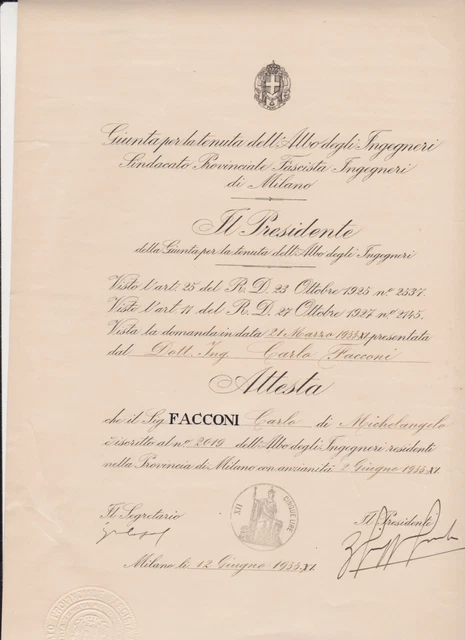 Giunta per la tenuta dell'Albo degli Ingegneri
Sindacato Provinciale Fascista Ingegneri
di Milano
Il Presidente
della Giunta per la tenuta dell'Albo degli Ingegneri
Visto l'art. 25 del R. D. 23 Ottobre 1925 nº 2537.
Visto l'art. 17 del R. D. 27 Ottobre 1927 nº 2145.
Vista la domanda in data 21 Marzo 1933 XI presentata
dal Dott. Ing. Carlo Facconi
Attesta
che il Sig. FACCONI Carlo di Michelangelo
è iscritto al nº 2019 dell'Albo degli Ingegneri residenti
nella Provincia di Milano con anzianità 2 Giugno 1933 XI.
XII CINQUE LIRE
Il Segretario Il Presidente
Milano li 12 Giugno 1933 XI